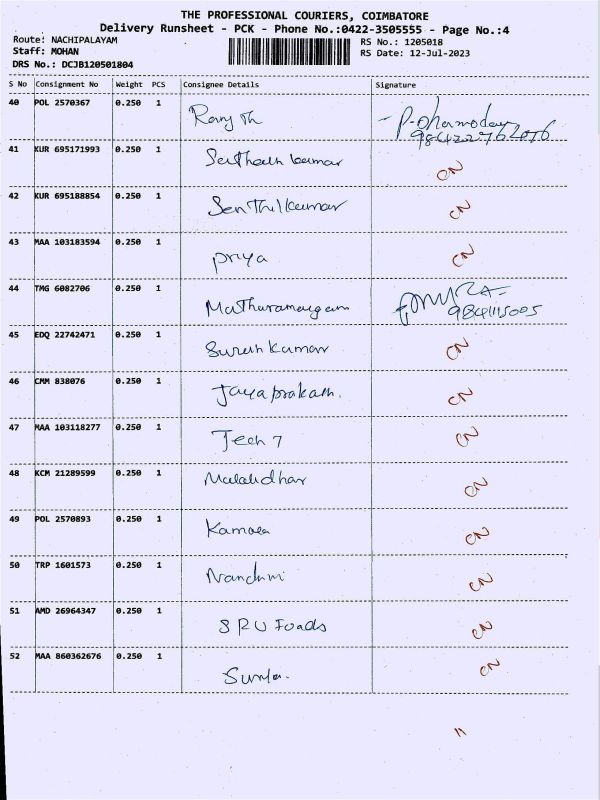 THE PROFESSIONAL COURIERS, COIMBATORE
Delivery Runsheet - PCK - Phone No.:0422-3505555 - Page No.:4
Route: NACHIPALAYAM
Staff: MOHAN
DRS No.: DCJB120501804
RS No.: 1205018
RS Date: 12-Jul-2023
S No Consignment No Weight PCS Consignee Details Signature
40 POL 2570367 0.250 1
41 KUR 695171993 0.250 1 kumar CN
42 KUR 695188854 0.250 1 Senthilkumar CN
43 MAA 103183594 0.250 1 priya CN
44 TMG 6082706 0.250 1
45 EDQ 22742471 0.250 1 Suresh Kumar CN
46 CMM 838076 0.250 1 Jayaprakash. CN
47 MAA 103118277 0.250 1 Tech 7 CN
48 KCM 21289599 0.250 1 CN
49 POL 2570893 0.250 1 Kamala CN
50 TRP 1601573 0.250 1 Nandhini CN
51 AMD 26964347 0.250 1 CN
52 MAA 860362676 0.250 1 CN